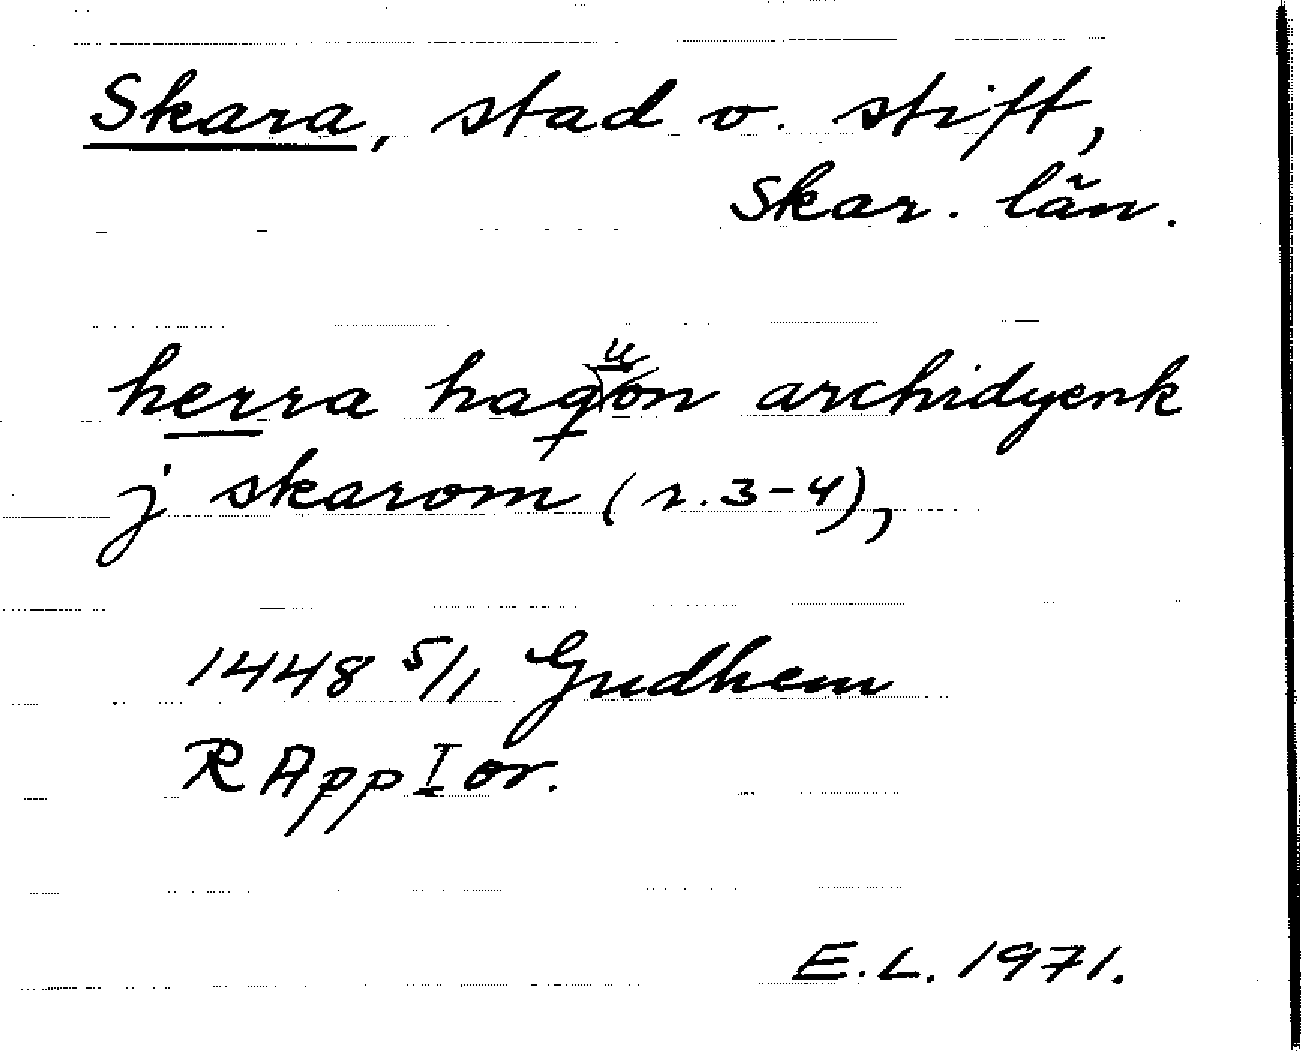 Skara, stad o. stift,
Skar. län.
herra haquon archidyenk
j skarom (r. 3-4),
1448 5/1 Gudhem
RAppI or.
E.L. 1971.